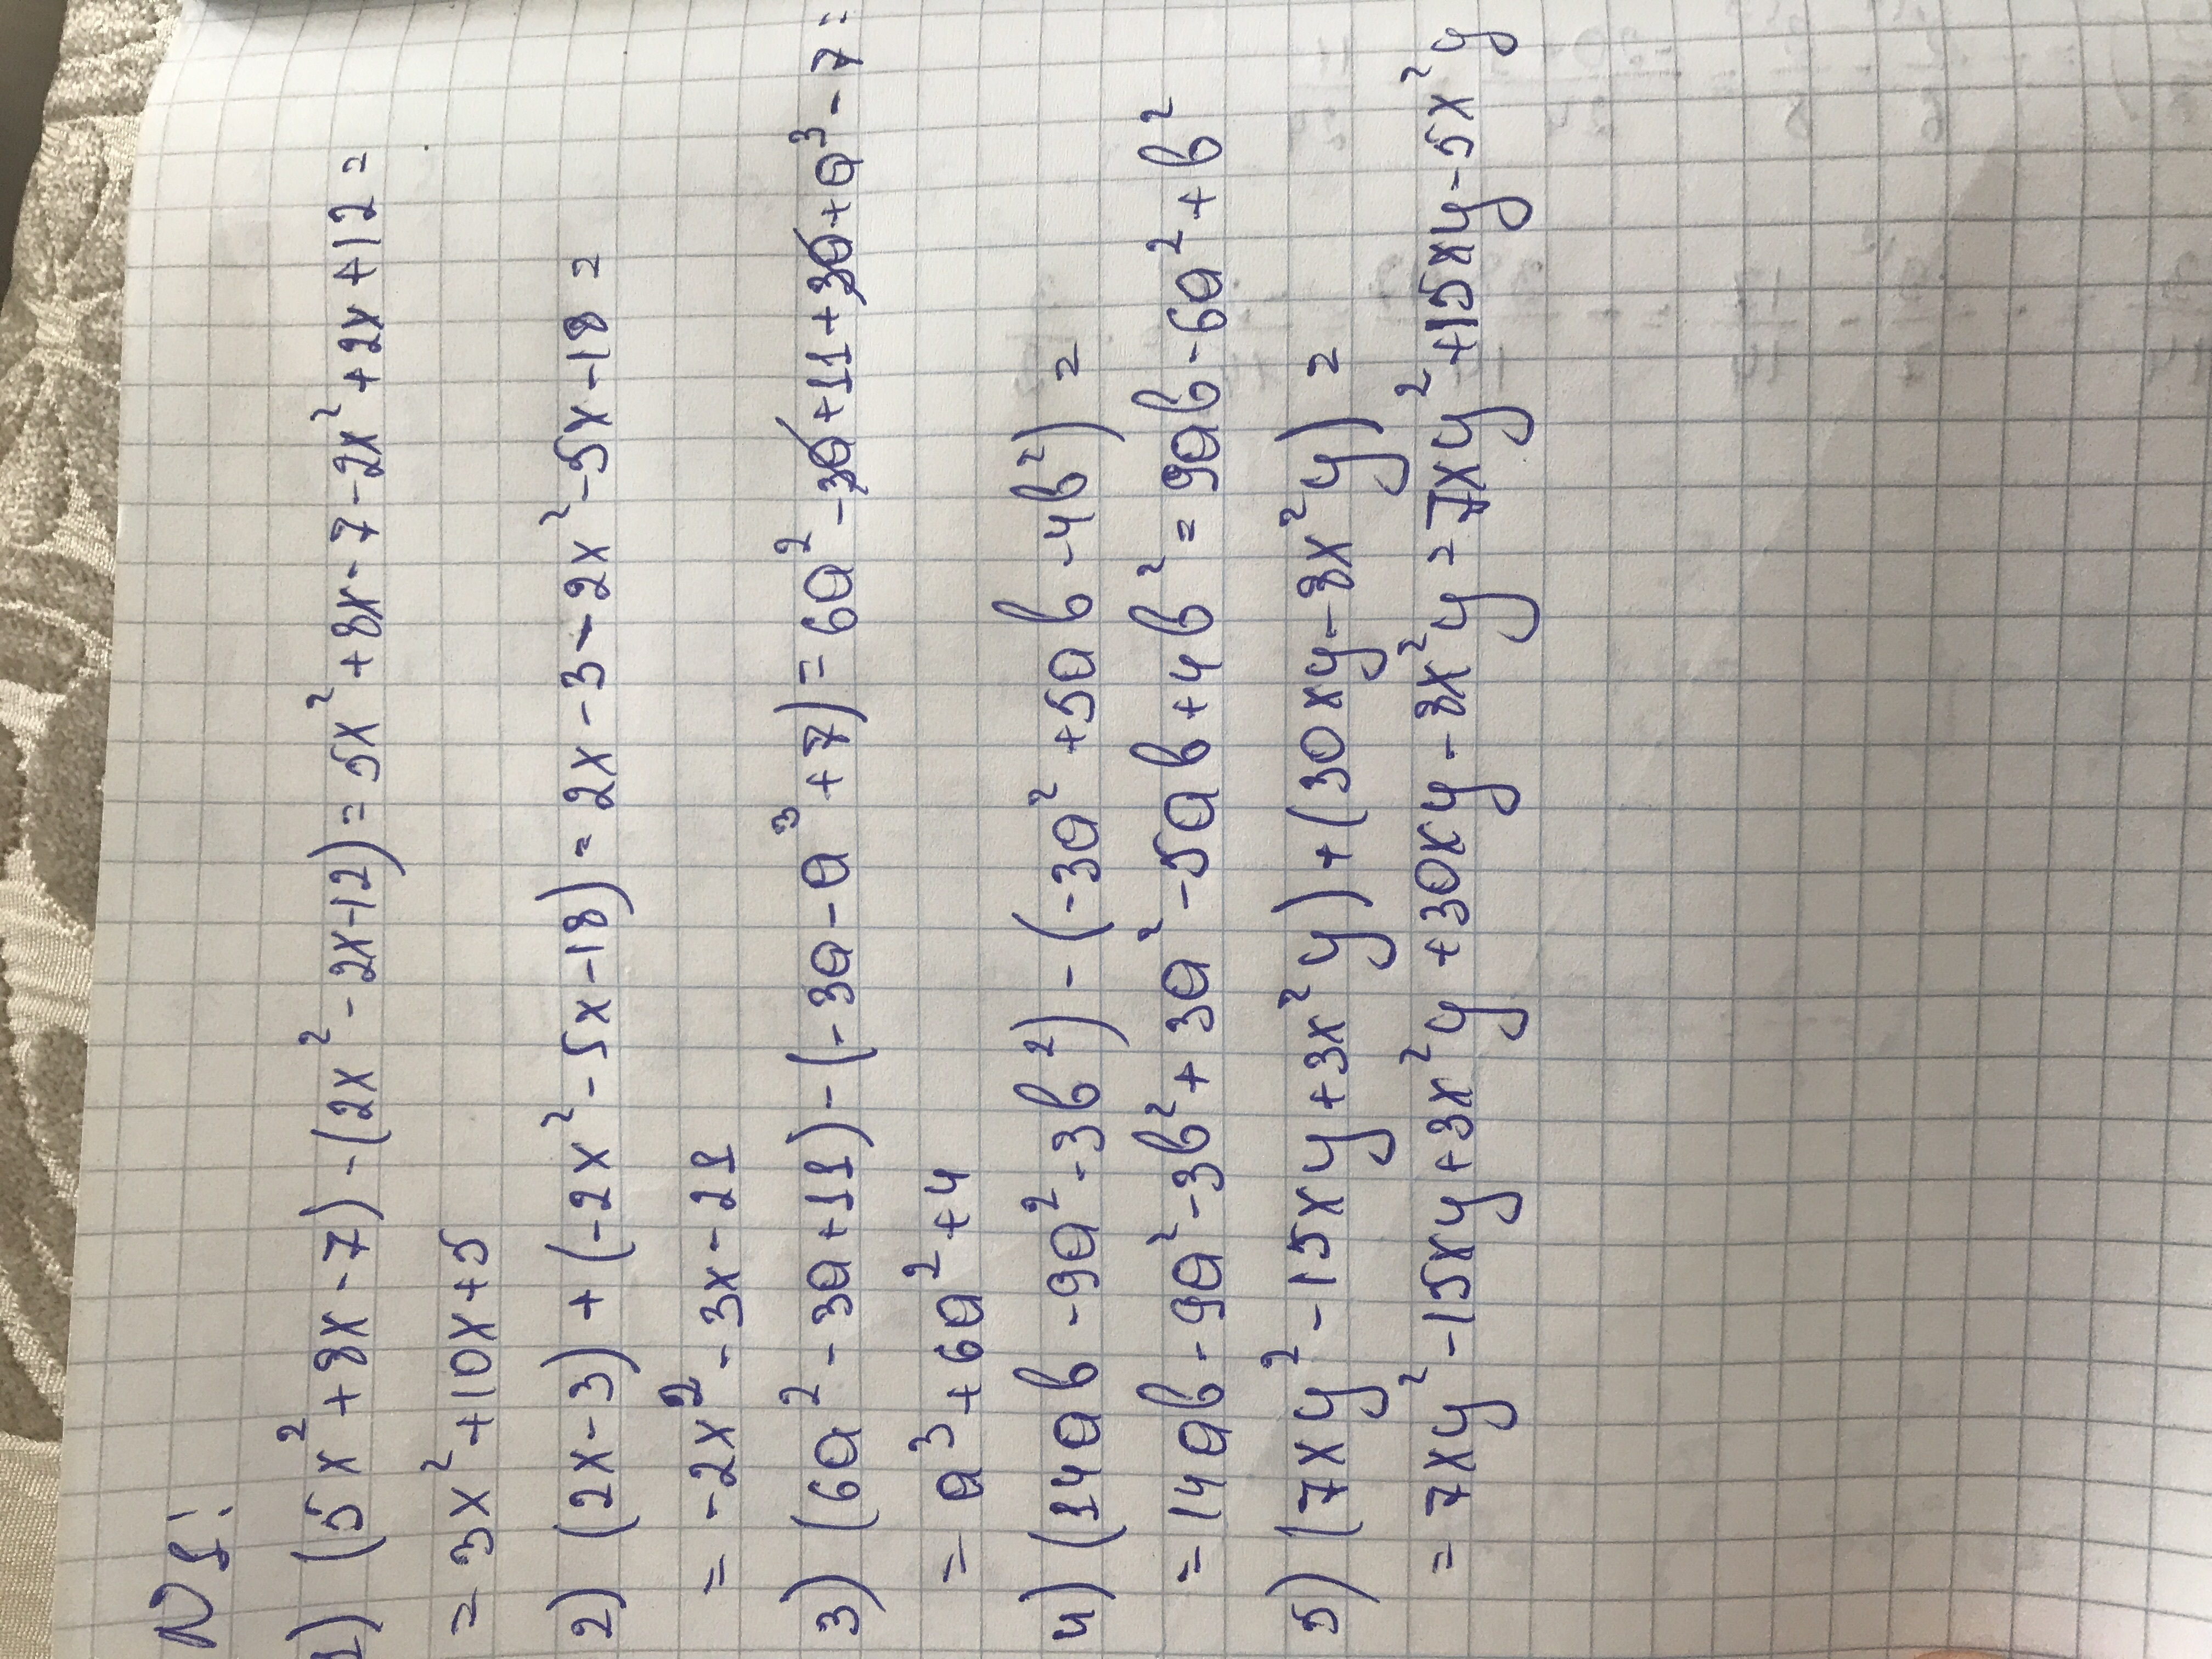 N1:
1) (5x² + 8x - 7) - (2x² - 2x - 12) = 5x² + 8x - 7 - 2x² + 2x + 12 =
= 3x² + 10x + 5
2) (2x - 3) + (-2x² - 5x - 18) = 2x - 3 - 2x² - 5x - 18 =
= -2x² - 3x - 21
3) (6a² - 3a + 11) - (-3a - a³ + 7) = 6a² - 3a + 11 + 3a + a³ - 7 =
= a³ + 6a² + 4
4) (14ab - 9a² - 3b²) - (-3a² + 5ab - 4b²) =
= 14ab - 9a² - 3b² + 3a² - 5ab + 4b² = 9ab - 6a² + b²
5) (7xy² - 15xy + 3x²y) + (30xy - 8x²y) =
= 7xy² - 15xy + 3x²y + 30xy - 8x²y = 7xy² + 15xy - 5x²y